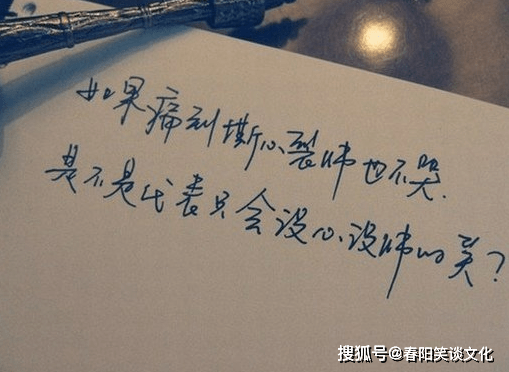 如果痛到撕心裂肺也不哭.
是不是代表只会没心没肺的笑？
搜狐号@春阳笑谈文化